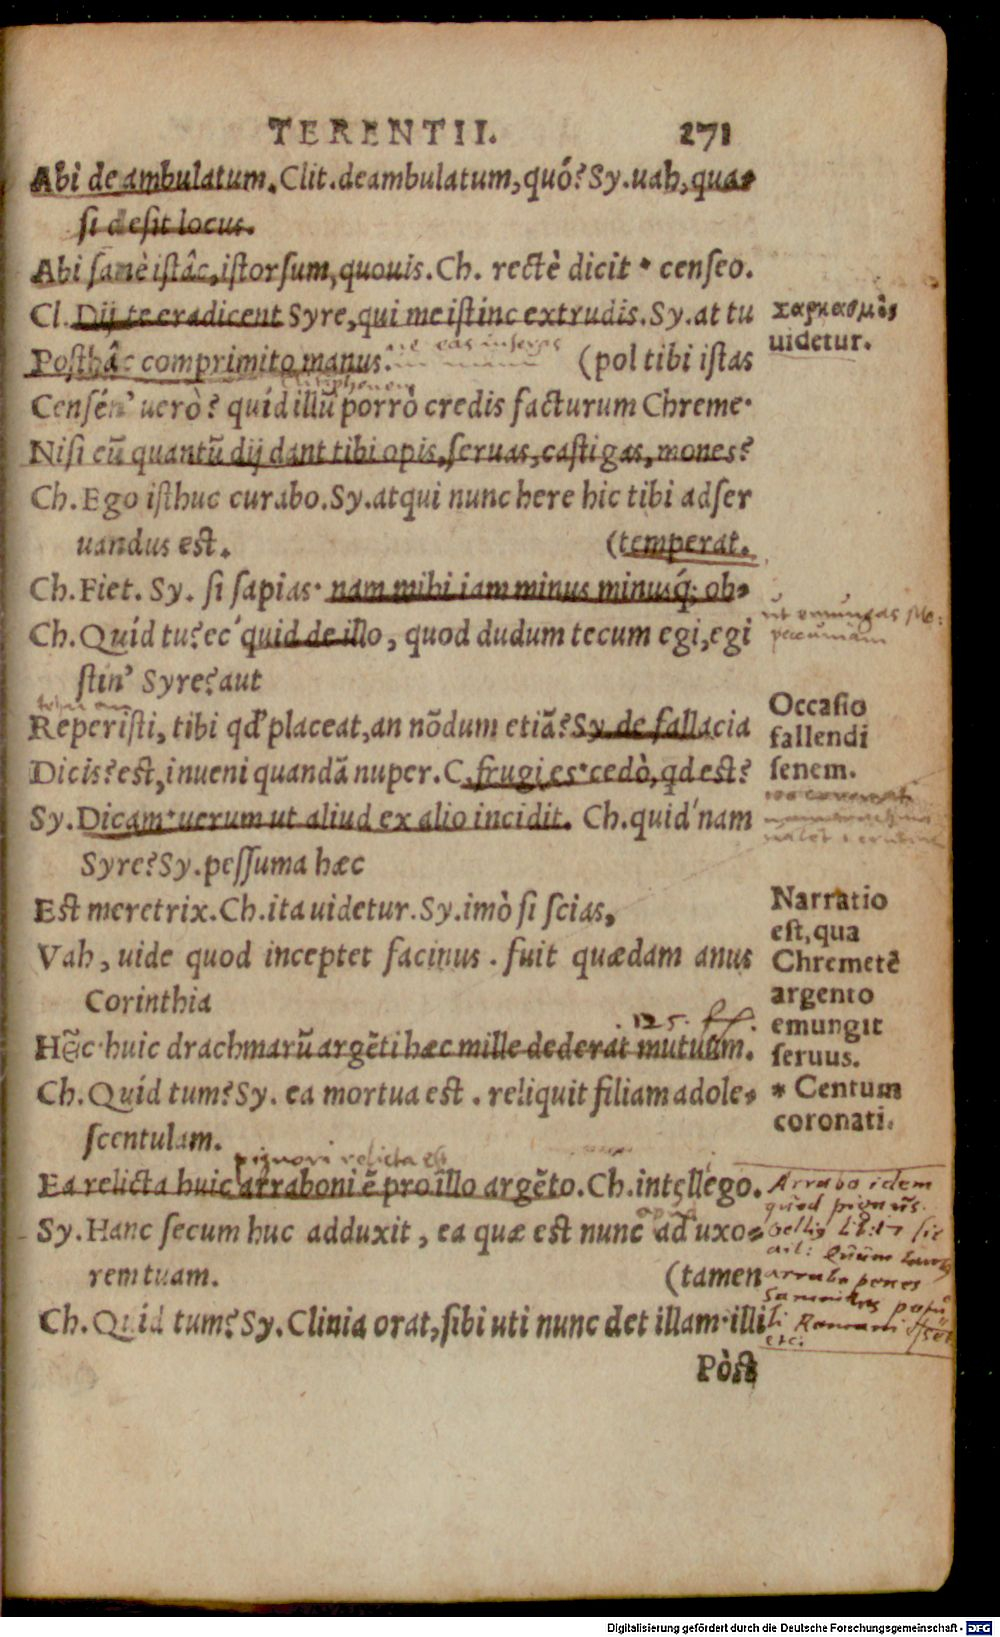 TERENTII. 271
Abi deambulatum. Clit. deambulatum, quó? Sy. uah, qua-
si desit locus.
Abi sanè istâc, istorsum, quouis. Ch. rectè dicit · censeo.
Cl. Dij te eradicent Syre, qui me istinc extrudis. Sy. at tu
Posthâc comprimito manus. (pol tibi istas
ne eas inseras
Clitiphonem
Censén' uerò? quid illũ porrò credis facturum Chreme·
Nisi eũ quantũ dij dant tibi opis, seruas, castigas, mones?
Ch. Ego isthuc curabo. Sy. atqui nunc here hic tibi adser
uandus est. (temperat.
Ch. Fiet. Sy. si sapias· nam mihi iam minus minusq́; ob-
Ch. Quid tu? ec' quid de illo, quod dudum tecum egi, egi
stin' Syre? aut
Reperisti, tibi qd' placeat, an nõdum etiã? Sy. de fallacia
Dicis? est, inueni quandã nuper. C. frugi es· cedò, qd est?
Sy. Dicam· uerum ut aliud ex alio incidit. Ch. quid'nam
Syre? Sy. pessuma hæc
Est meretrix. Ch. ita uidetur. Sy. imò si scias,
Vah, uide quod inceptet facinus. fuit quædam anus
Corinthia
. 125. ff.
Hẽc· huic drachmarũ argẽti hæc mille dederat mutuũm.
Ch. Quid tum? Sy. ea mortua est. reliquit filiam adole-
scentulam.
pignori relicta est
Ea relicta huic arraboni ẽ pro illo argẽto. Ch. intellégo.
apud
Sy. Hanc secum huc adduxit, ea quæ est nunc ad uxo-
rem tuam. (tamen
Ch. Quid tum? Sy. Clinia orat, sibi uti nunc det illam· illi
Pòst
σαρκασμὸς
uidetur.
ut emungas
pecuniam
Occasio
fallendi
senem.
Narratio
est, qua
Chremetẽ
argento
emungit
seruus.
* Centum
coronati.
Arrabo idem
quod pignus.
Gellius Lib: 17 sic
ait: Quum
arrabo penes
Samnites
Romani
etc:
Digitalisierung gefördert durch die Deutsche Forschungsgemeinschaft - DFG